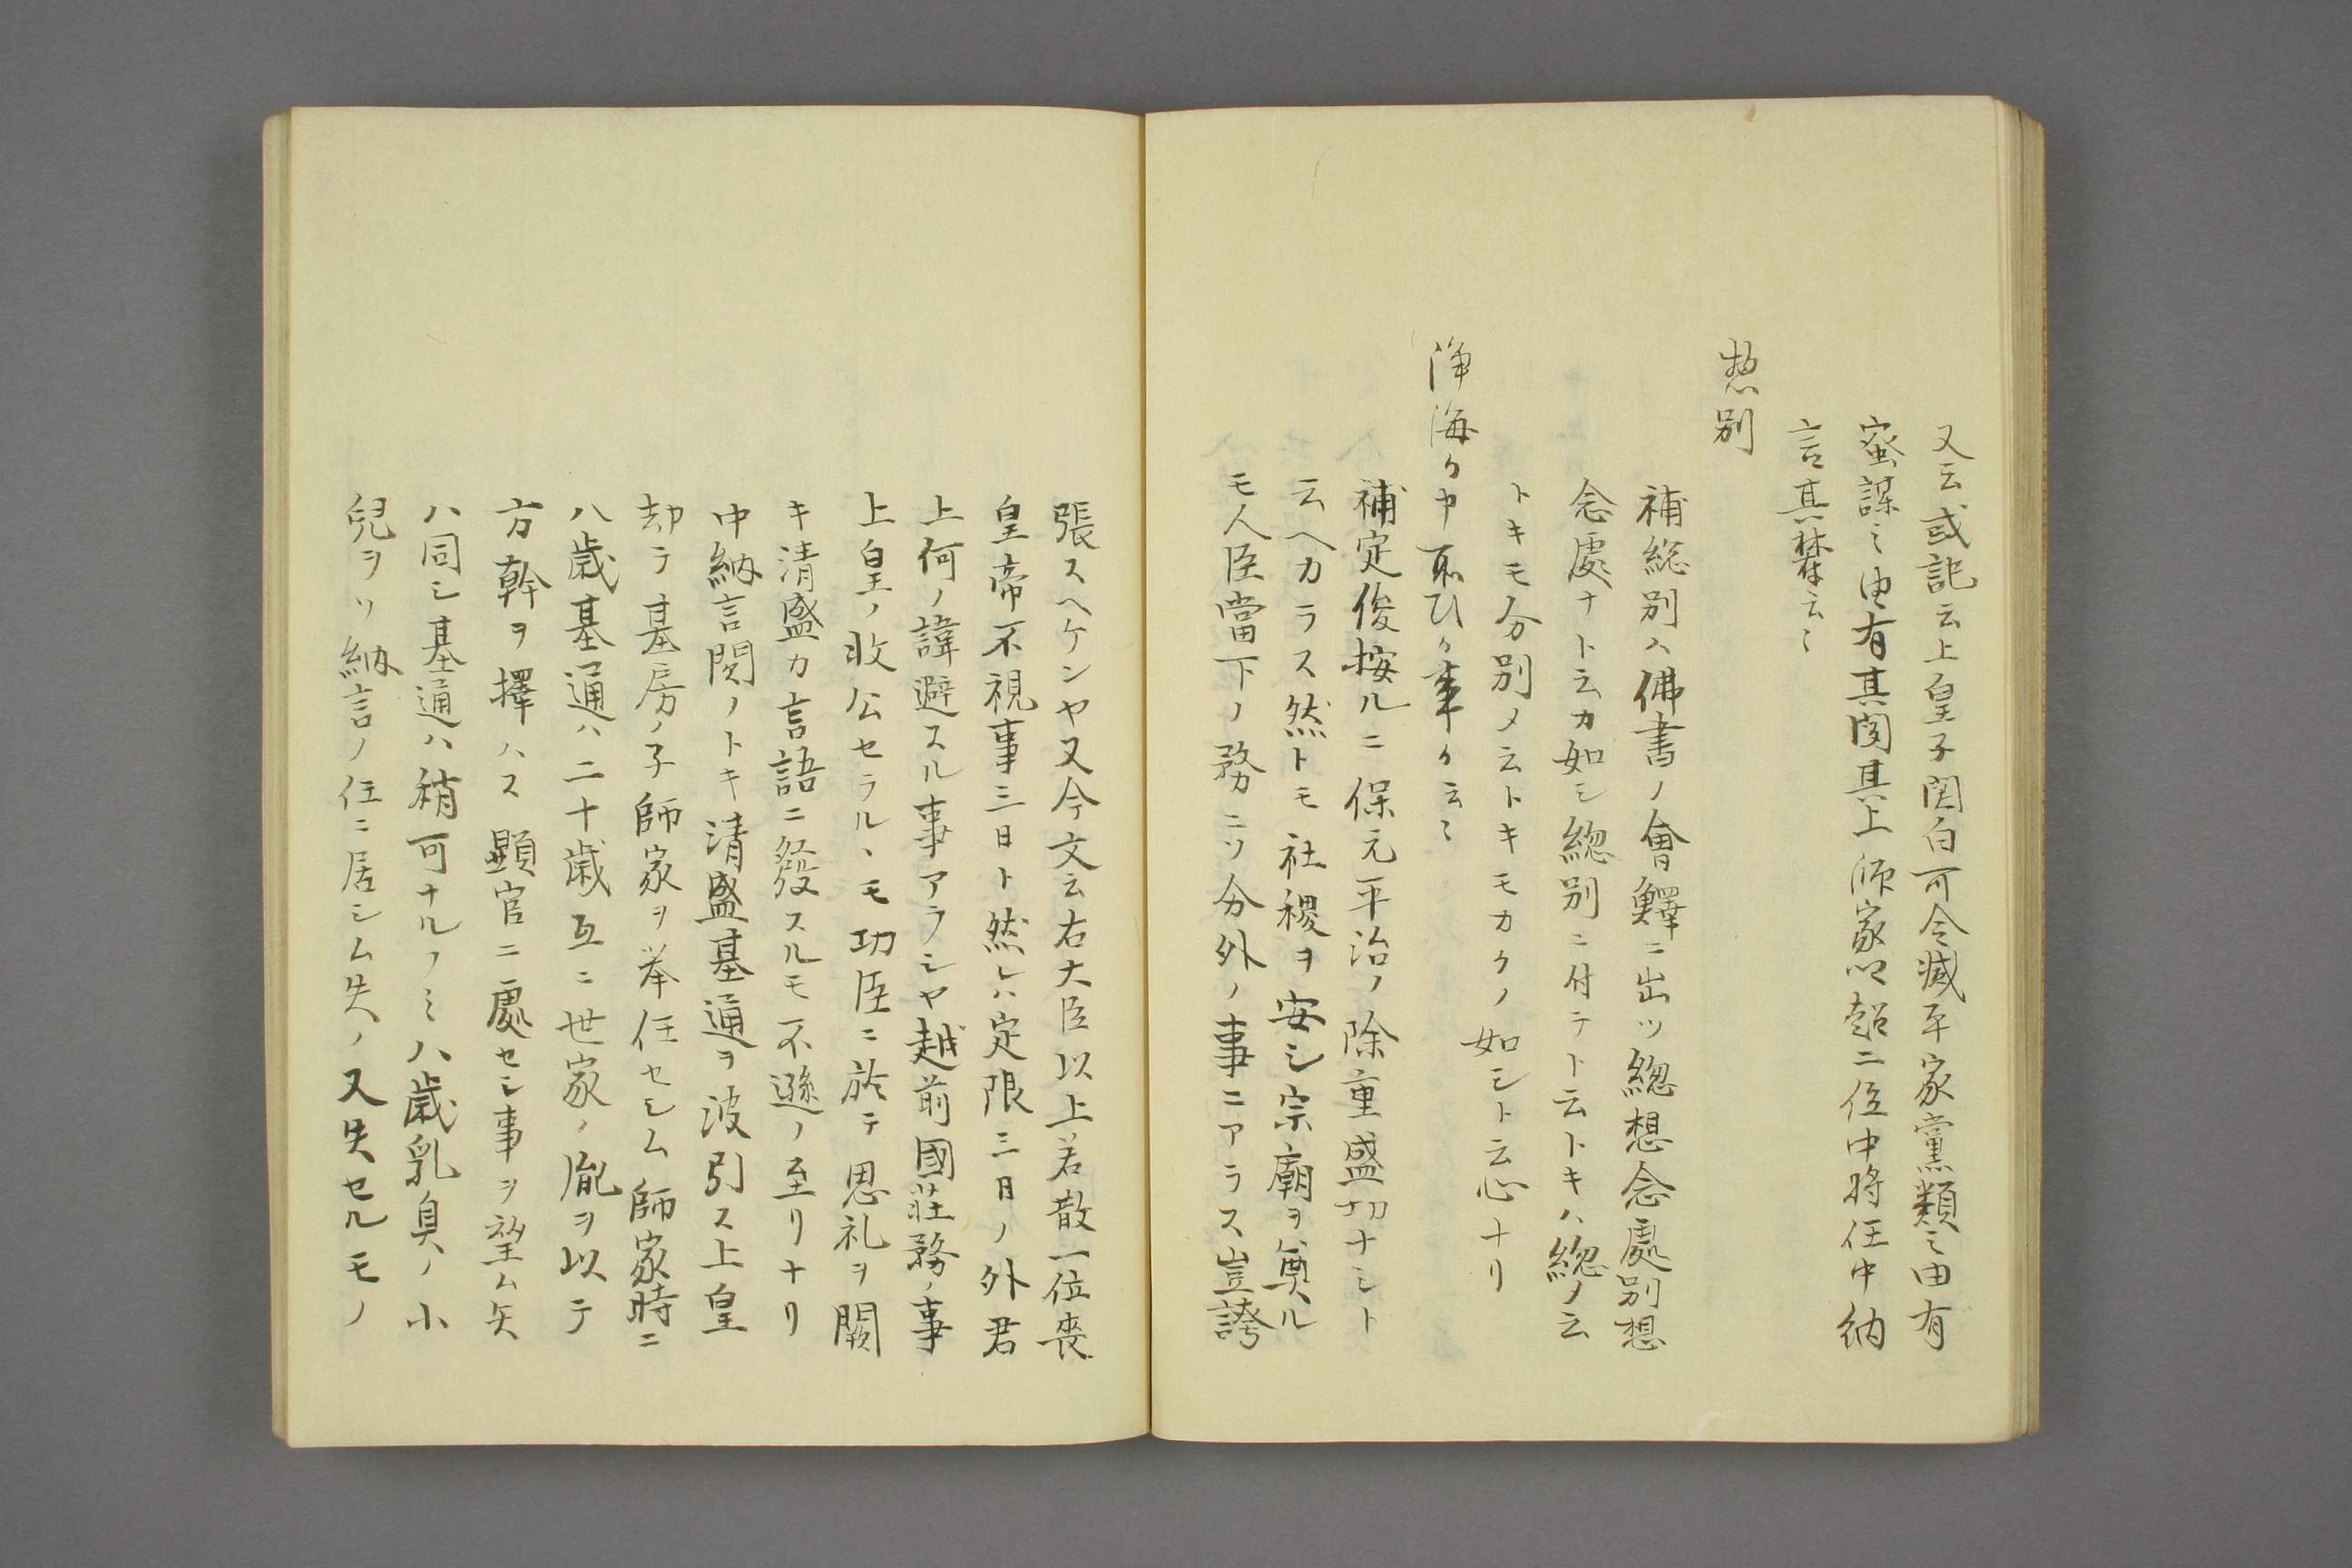 又云或記云上皇子関白可令滅平家黨類之由有
密謀之由有其聞其上師家以超二位中將任中納
言其禁云〻
惣別
補総別ハ佛書ノ會釋ニ出ツ總想念處別想
念處ナト云カ如シ總別ニ付テト云トキハ總ノ云
トキモ分別メ云トキモカクノ如シト云心ナリ
浄海カ申取ヒカ事ケ云〻
補定俊按ルニ保元平治ノ除重盛切ナシト
云ヘカラス然トモ社稷ヲ安シ宗廟ヲ奠ル
モ人臣當下ノ務ニソ分外ノ事ニアラス豈誇
張スヘケンヤ又今文云右大臣以上若散一位喪
皇帝不視事三日ト然レハ定限三日ノ外君
上何ノ諱避スル事アラシヤ越前國荘務ノ事
上皇ノ收公セラルヽモ功臣ニ於テ恩礼ヲ闕
キ清盛カ言語ニ發スルモ不遜ノ至リナリ
中納言関ノトキ清盛基通ヲ波引ス上皇
却テ基房ノ子師家ヲ挙任セシム師家時ニ
八歳基通ハ二十歳互ニ世家ノ胤ヲ以テ
方幹ヲ擇ハス顕官ニ處セシ事ヲ望ム矢
ハ同シ基通ハ稍可ナルノミ八歳乳臭ノ小
兒ヲソ納言ノ任ニ居シム失ノ又失セルモノ